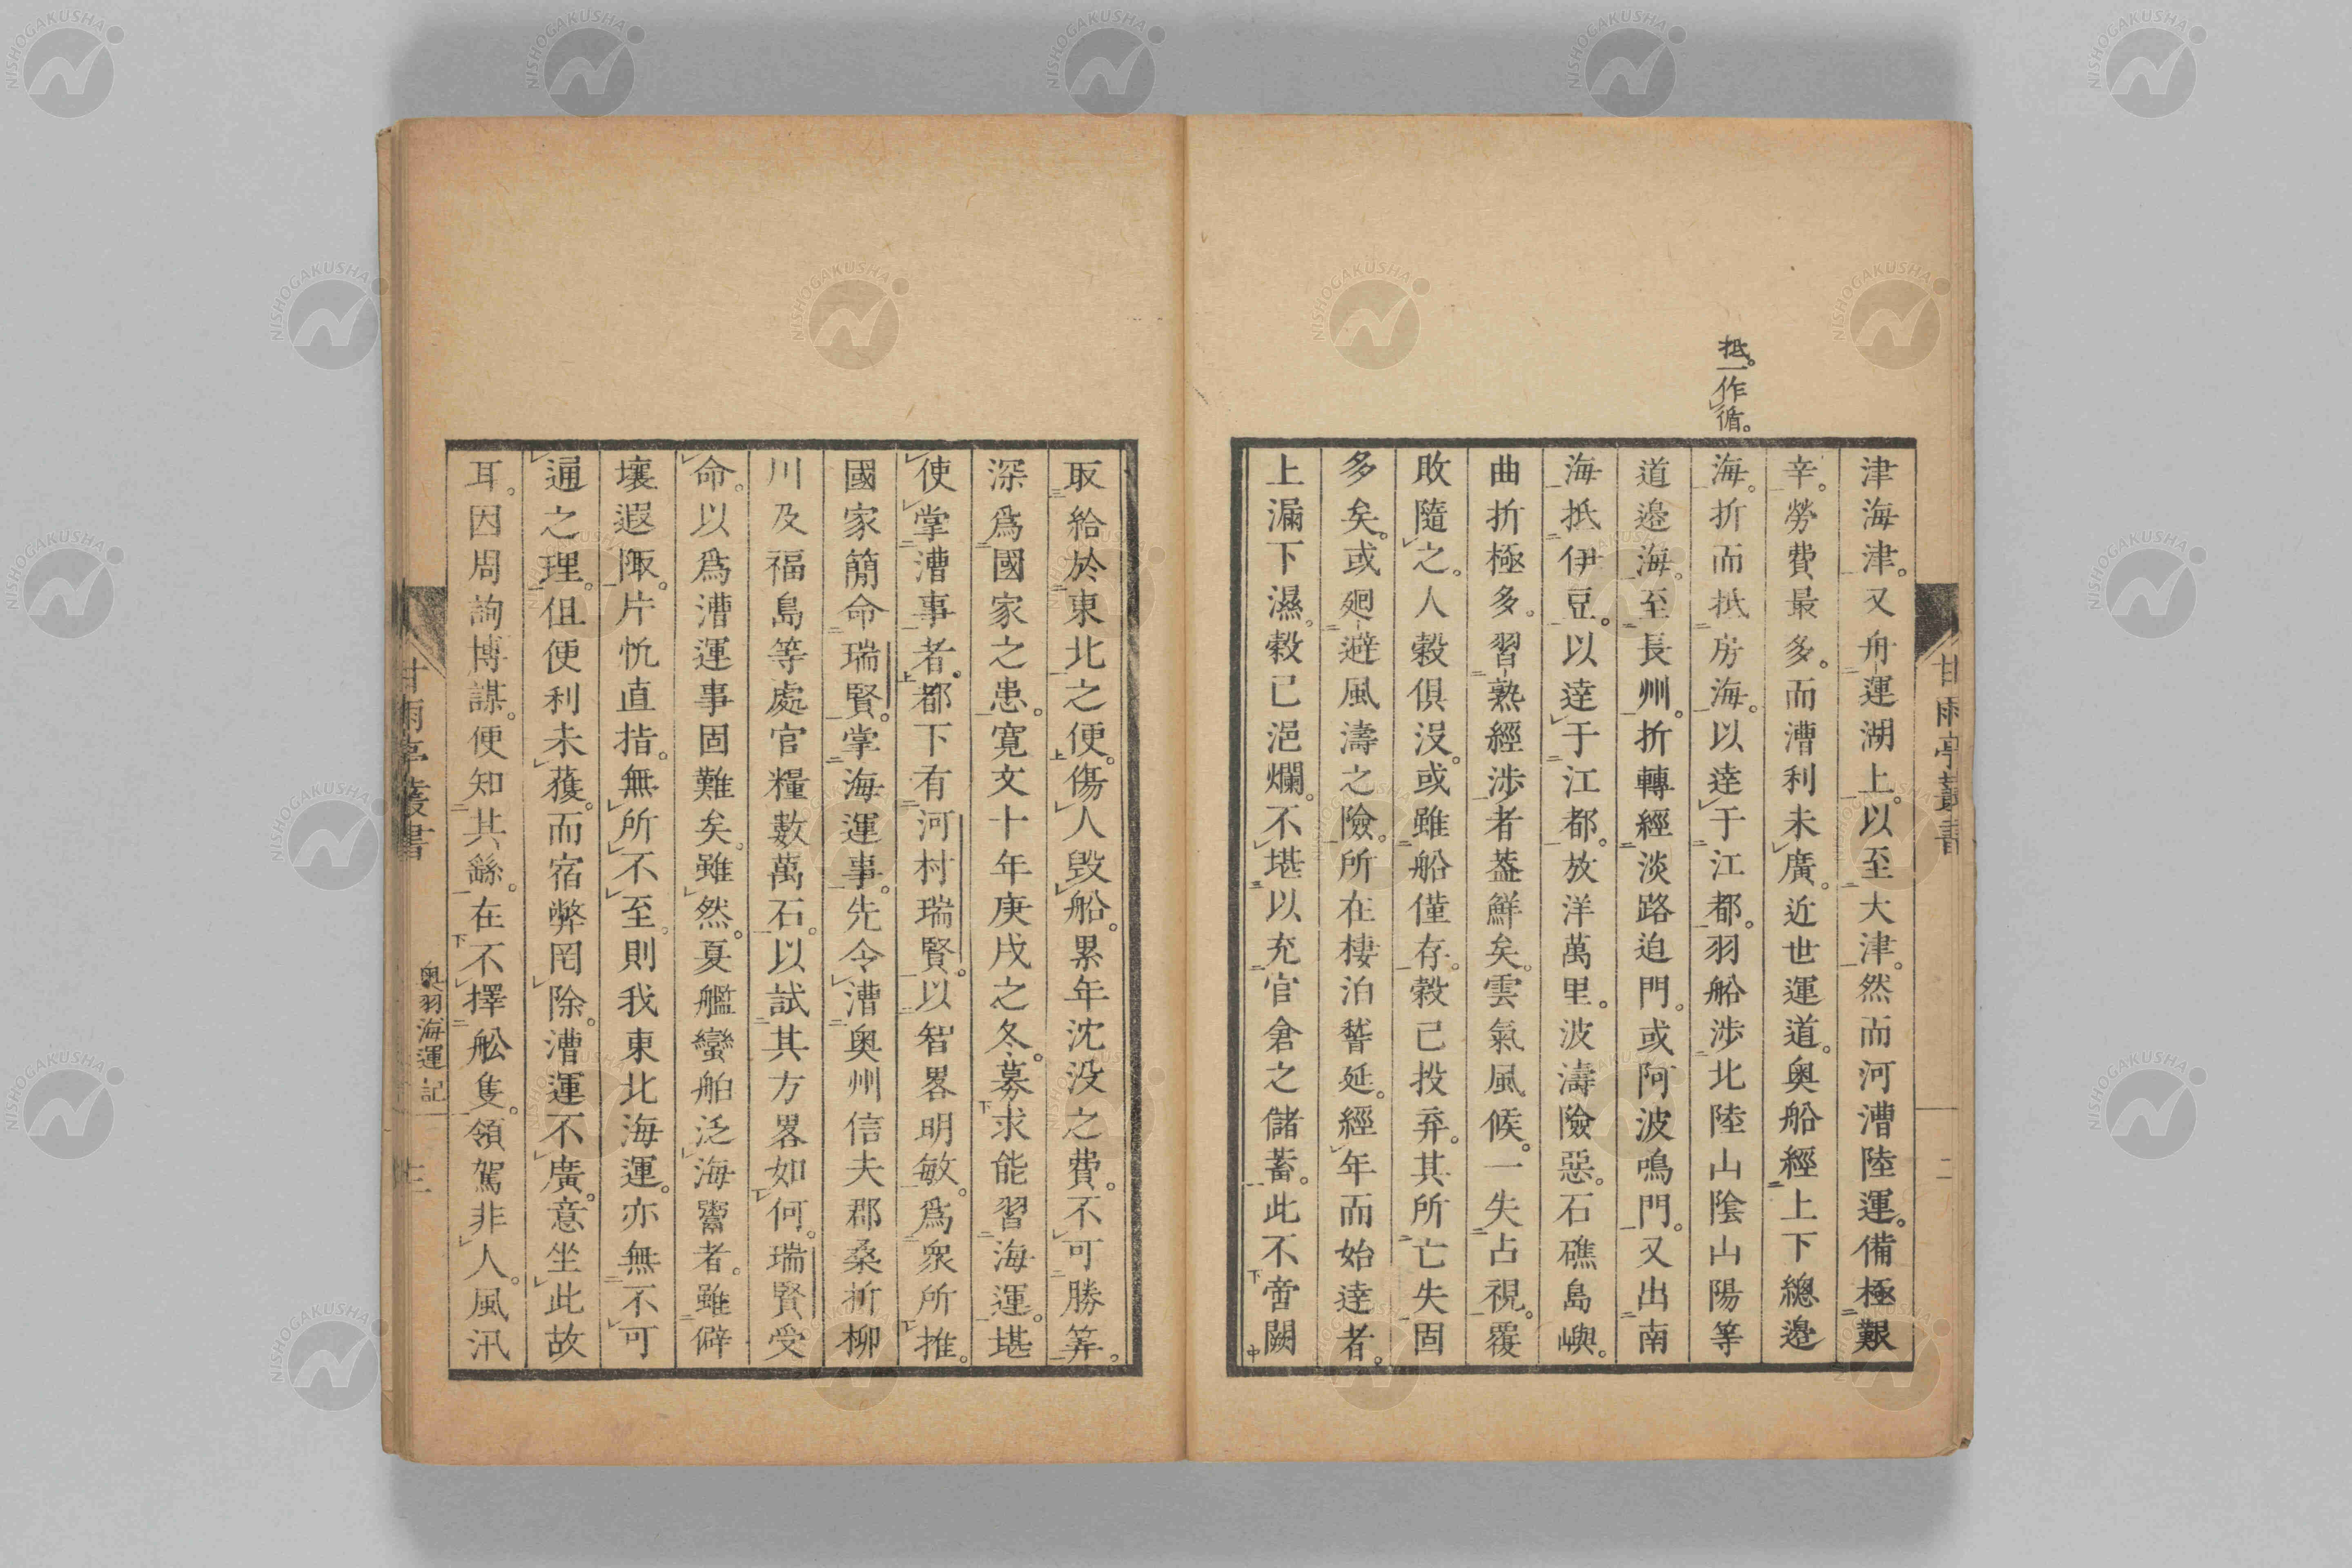 抵。一作循。
津海津。又舟運湖上。以至大津。然而河漕陸運。備極艱
辛。勞費最多。而漕利未廣。近世運道。奥船經上下總邉
海。折而抵房海。以達于江都。羽船涉北陸山陰山陽等
道邉海。至長州。折轉經淡路迫門。或阿波鳴門。又出南
海抵伊豆。以達于江都。放洋萬里。波濤險惡。石礁島嶼。
曲折極多。習熟經涉者葢鮮矣。雲氣風候。一失占視。覆
敗隨之。人穀俱沒。或雖船僅存。穀已投弃。其所亡失固
多矣。或廻避風濤之險。所在棲泊嵇延。經年而始達者。
上漏下濕。穀已浥爛。不堪以充官倉之儲蓄。此不啻闕
甘雨亭叢書
二
取給於東北之便。傷人毀船。累年沈没之費。不可勝筭。
深爲國家之患。寛文十年庚戌之冬。募求能習海運。堪
使掌漕事者。都下有河村瑞賢。以智畧明敏。爲衆所推。
國家簡命瑞賢。掌海運事。先令漕奥州信夫郡桑折柳
川及福島等處官糧數萬石。以試其方畧如何。瑞賢受
命。以爲漕運事固難矣。雖然。夏艦蠻舶泛海鬻者。雖僻
壤遐陬。片帆直指。無所不至。則我東北海運。亦無不可
通之理。但便利未獲。而宿弊罔除。漕運不廣。意坐此故
耳。因周詢博謀。便知其繇。在不擇舩隻。領駕非人。風汛
甘雨亭叢書
奥羽海運記
三
NISHOGAKUSHA